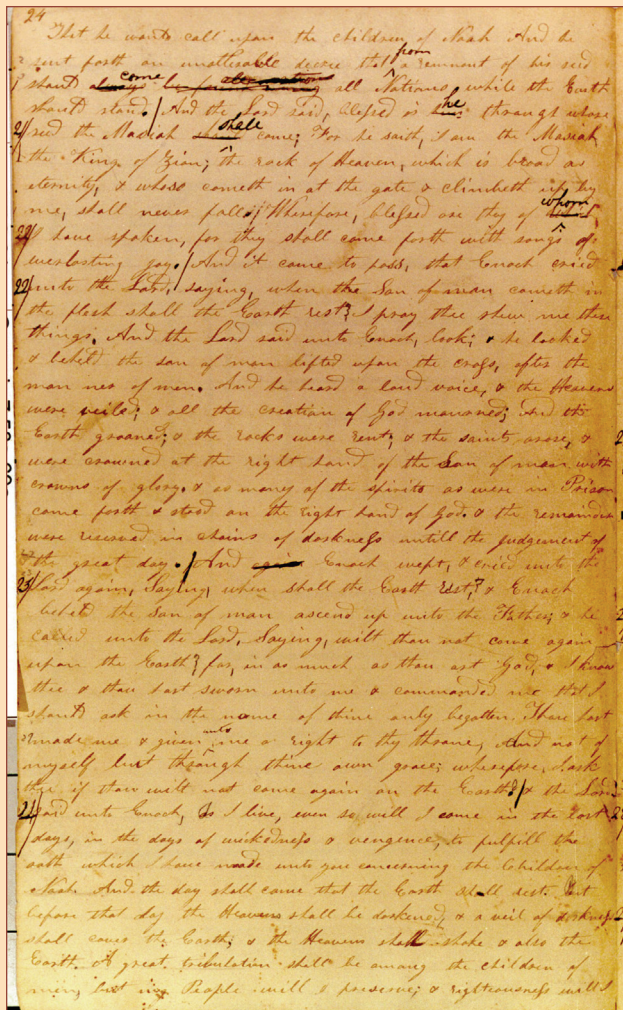 24
That he would call upon the children of Noah And he
sent forth an unalterable decree that from a remnant of his seed
should always come be found among all Nations, while the Earth
should stand. And the Lord said, blessed is he through whose
21 seed the Masiah shall come; For he saith, I am the Masiah,
the King of Zion; the rock of Heaven, which is broad as
eternity, & whoso cometh in at the gate & climbeth up by
me, shall never fall; Wherefore, blessed are they of whom
22 I have spoken, for they shall come forth with songs of
everlasting joy. And it came to pass, that Enoch cried
22 unto the Lord, saying, when the Son of man cometh in
the flesh shall the Earth rest? I pray thee shew me these
things. And the Lord said unto Enoch, look; & he looked
& beheld the son of man lifted upon the cross, after the
man ner of men. And he heard a loud voice, & the Heavens
were veiled; & all the creation of God mourned; And the
Earth groaned; & the rocks were rent; & the saints arose, &
were crowned at the right hand of the Son of man with
crowns of glory. & as many of the spirits as were in Prison
came forth & stood on the right hand of God. & the remainder
were reserved in chains of darkness untill the judgement of
the great day. And Enoch wept, & cried unto the
23 Lord again, Saying, when shall the Earth rest? & Enoch
beheld the Son of man ascend up unto the Father; & he
called unto the Lord, Saying, wilt thou not come again
upon the Earth? for, in as much as thou art God, & I know
thee & thou hast sworn unto me & commanded me that I
should ask in the name of thine only begotten. Thou hast
made me & given unto me a right to thy throne, And not of
myself but through thine own grace; wherefore, I ask
thee if thou wilt not come again on the Earth? & the Lord
24 said unto Enoch, As I live, even so will I come in the last
days, in the days of wickedness & vengence, to fulfill the
oath which I have made unto you concerning the Children of
Noah And the day shall come that the Earth shall rest. But
before that day the Heavens shall be darkened, & a veil of darkness
shall cover the Earth; & the Heavens shall shake & also the
Earth. & great tribulation shall be among the children of
men, but my People will I preserve; & righteousness will I